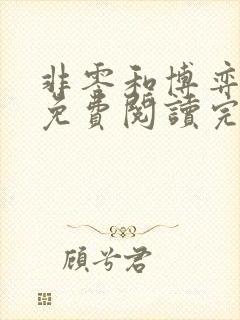 非零和博弈
免費閱讀完
顾兮君